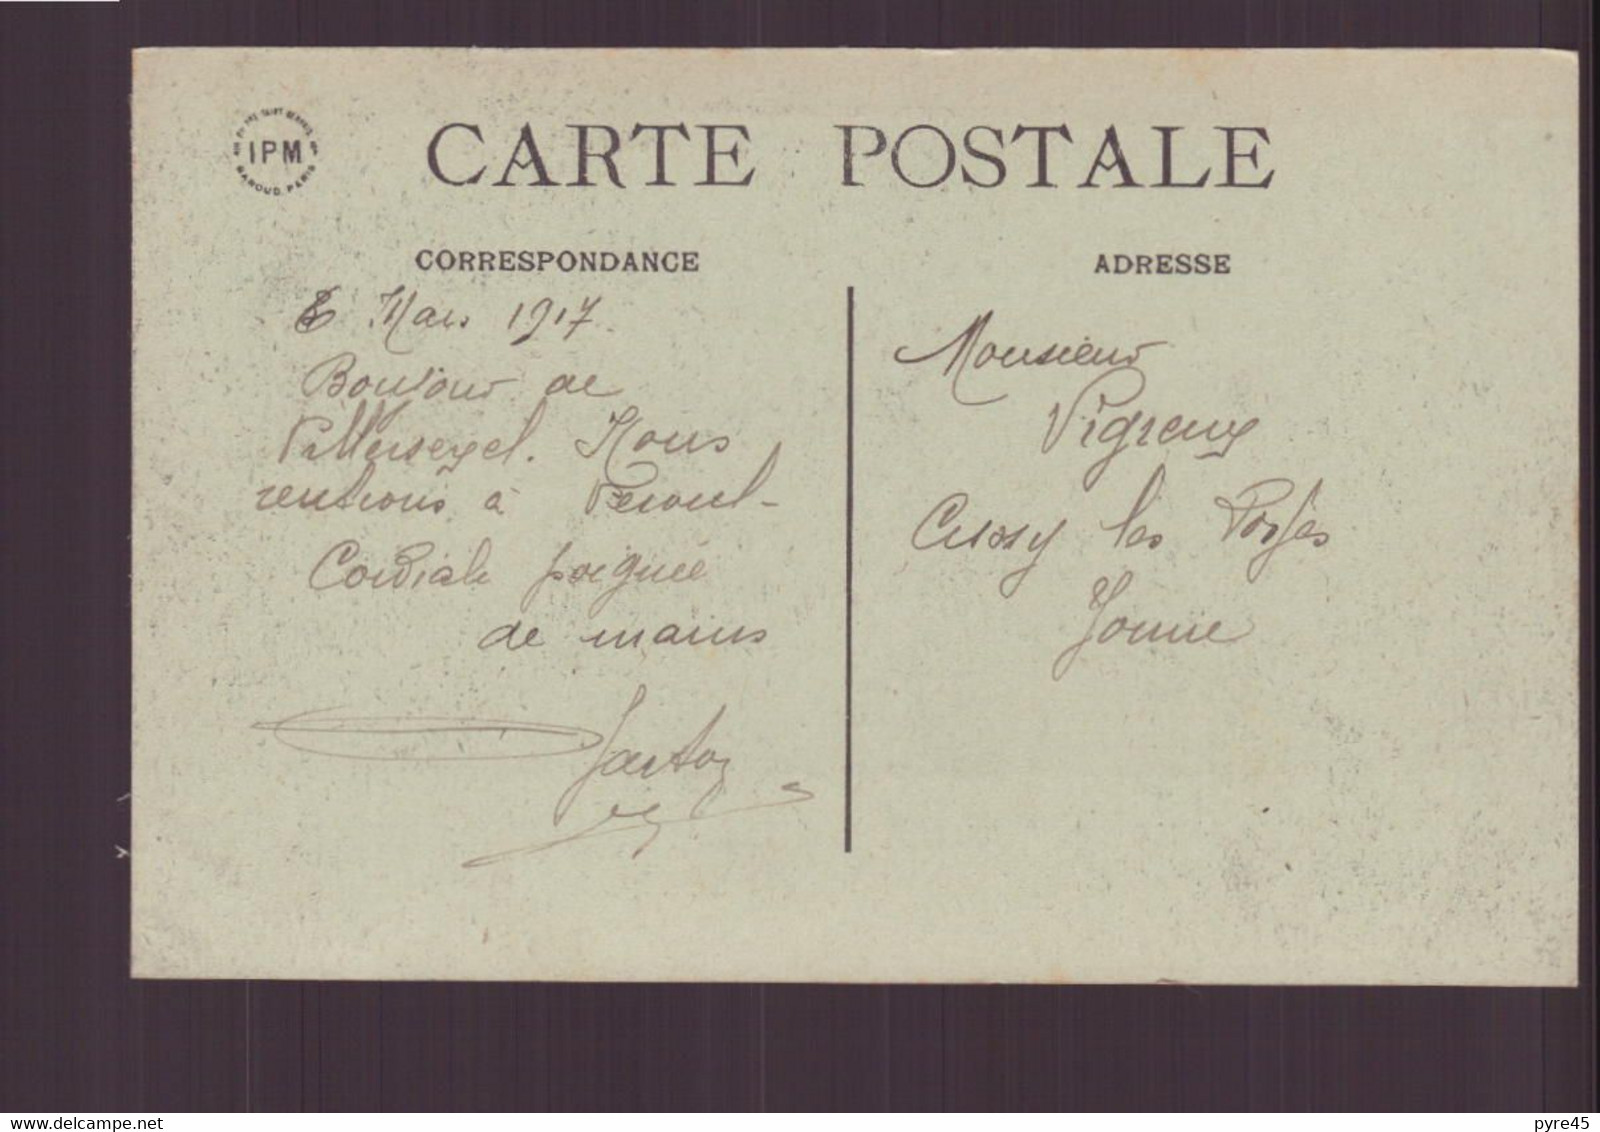 IPM
CARTE POSTALE
CORRESPONDANCE
6 Mars 1917.
Bonjour de
Villersexel. Nous
rentrons à
Cordiale poignée
de mains
ADRESSE
Monsieur
Vigreux
Cussy les Forges
Yonne
delcampe.net
pyre45